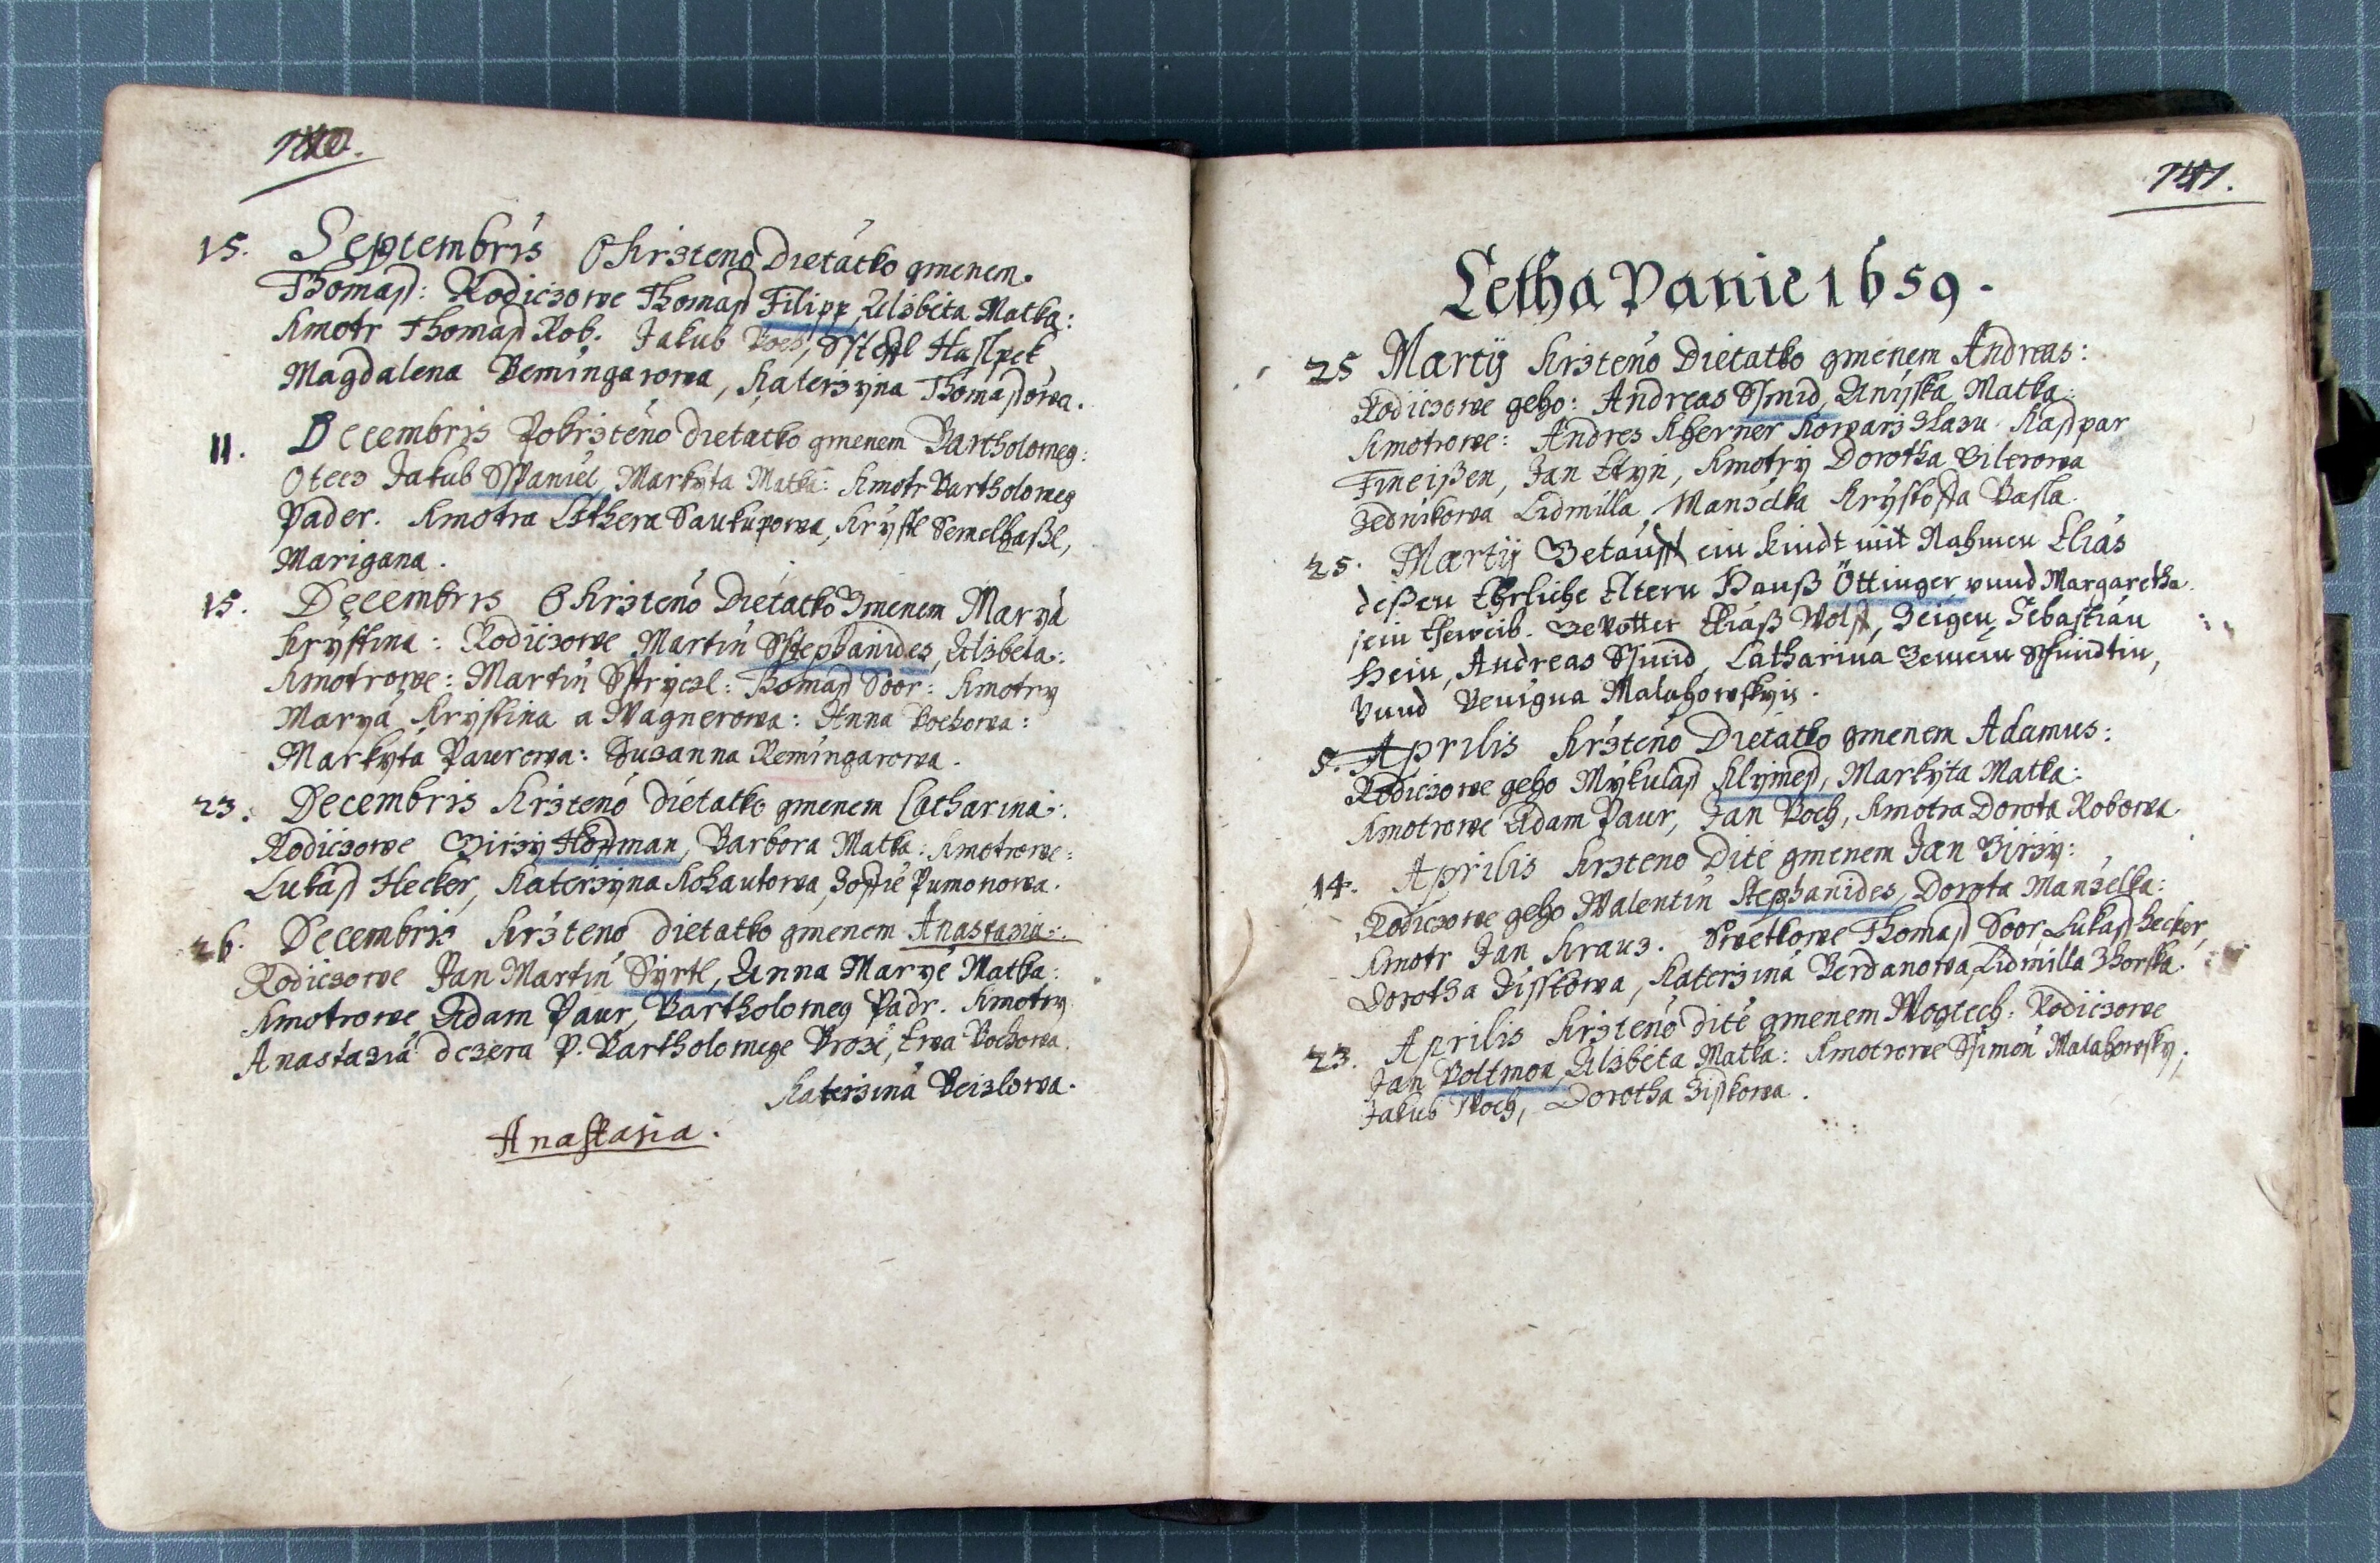 15. Septembris Okrzteno Dietatko gmenem.
Thomass: Rodiczowe Thomass Filipp, Alzbeta Matka:
Kmotr Thomass Rob. Jakub Koch, Hasspek
Magdalena Bemingarowa, Katerzyna Thomassowa.
11. Decembris Pokrzteno dietatko gmenem Bartholomeg:
Otecz Jakub Sspaniel, Markyta Matka: Kmotr Bartholomeg
Pader. Kmotra Esthera Saukupowa, Krystl Semelhaßl,
Marigana.
15. Decembris Okrzteno Dietatko Gmenem Marya
Krystina: Rodiczowe Martin Sstephanides, Alzbeta:
Kmotrowe: Martin Sstryczl: Thomass Soor: Kmotry
Marya Krystina a Wagnerowa: Anna Kochowa:
Markyta Paurowa: Susanna Remingarowa.
23. Decembris Krzteno dietatko gmenem Catharina:
Rodiczowe Girzy Hoffman, Barbora Matka: Kmotrowe:
Lukass Hecker, Katerzyna Kohautowa, Zoffie Pumonowa.
26. Decembris Krzteno dietatko gmenem Anastazia:
Rodiczowe Jan Martin Syrtl, Anna Marye Matka:
Kmotrowe Adam Paur, Bartholomeg Padr. Kmotry
Anastazia dczera P. Bartholomege Broze, Ewa Kochowa.
Katerzina Beizlowa.
Anastasia.
Letha Panie 1659.
25 Martij Krzteno Dietatko gmenem Andreas:
Rodiczowe geho: Andreas Ssmid, Anysska Matka:
Kmotrowe: Andres Kherner Kowarz Kasspar
Fineißen, Jan Ettyn, Kmotry Dorotha Bilerowa
Zednikowa Lidmilla, Manzelka Krysstoffa Basla.
25. Martij Getaufft ein Kindt mit Nahmen Elias
deßen Ehrliche Eltern Hanß Öttinger vnnd Margaretha
sein Eheweib. Gevotter Eliaß Wolff, Zeigen Sebastian
Hein, Andreas Ssmid, Catharina Schmidtin,
Vnnd Benigna Malahowskyn.
5. Aprilis Krzteno Dietatko gmenem Adamus:
Rodiczowe geho Mykulass Klymess, Markyta Matka:
Kmotrowe Adam Paur, Jan Koch, Kmotra Dorota Robowa.
14. Aprilis Krzteno Dite gmenem Jan Girzy:
Rodiczowe geho Walentin Stephanides, Dorota Manzelka:
Kmotr Jan Krauz. Swetkowe Thomass Soor, Lukass hecker,
Dorotha Zisskowa, Katerzina Berdanowa, Lidmilla Zhorska.
23. Aprilis Krzteno dite gmenem Wogtech: Rodiczowe
Jan Voltmon, Alzbeta Matka: Kmotrowe Ssimon Malahowsky,
Jakub Koch, Dorotha Zisskowa.